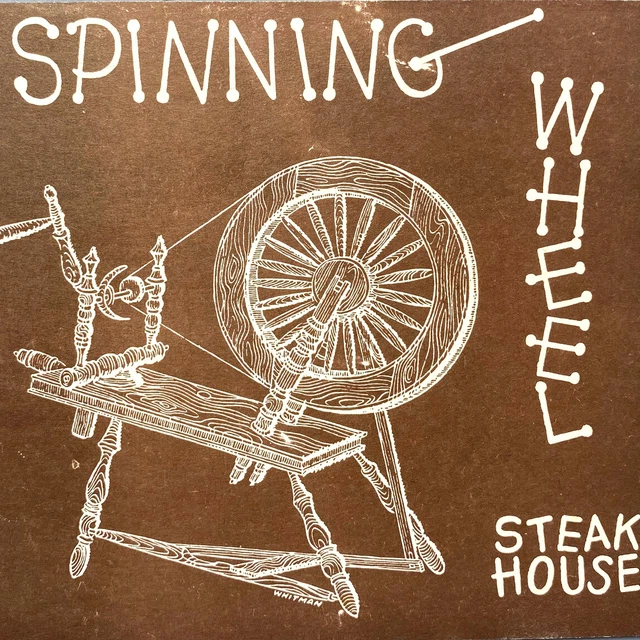 SPINNING
WHEEL
STEAK
HOUSE
WHITMAN